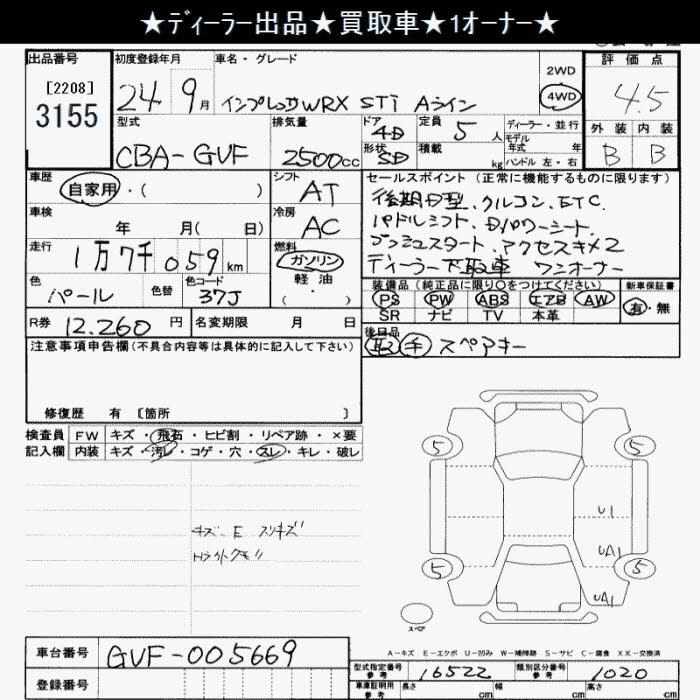 ★ディーラー出品★買取車★1オーナー★
出品番号
[2208]
3155
初度登録年月
24年 9月
車名・グレード
インプレッサ WRX STi Aライン
2WD
4WD
評価点
4.5
型式
CBA-GVF
排気量
2500cc
ドア
4D
形状
SD
定員
5人
積載
kg
ディーラー・並行
モデル年式 年
ハンドル 左・右
外装 内装
B B
車歴
自家用・( )
シフト
AT
車検
年 月( 日)
冷房
AC
走行
1万7千059km
燃料
ガソリン
軽油
( )
色
パール
色替
色コード
37J
R券
12,260円
名変期限 月 日
セールスポイント (正常に機能するものに限ります)
後期D型、クルコン、ETC、
パドルシフト、Dパワーシート、
プッシュスタート、アクセスキー×2
ディーラー下取車 ワンオーナー
装備品(純正品に限り〇をつけてください)
PS PW ABS エアB AW
SR ナビ TV 本革
新車保証書
有・無
後日品
取 手 スペアキー
注意事項申告欄(不具合内容等は具体的に記入して下さい)
修復歴 有 [箇所 ]
検査員 FW キズ・飛石・ヒビ割・リペア跡・×要
記入欄 内装 キズ・汚レ・コゲ・穴・スレ・キレ・破レ
キズ、E スリキズ
5 5
U1
UA1
5 5
UA1
スペア
A-キズ E-エクボ U-凹み W-補修跡 S-サビ C-腐食 XX-交換済
車台番号
GVF-005669
登録番号
型式指定番号
参考
16522
類別区分番号
参考
1020
車庫証明用
参考
長さ cm
幅 cm
高さ cm